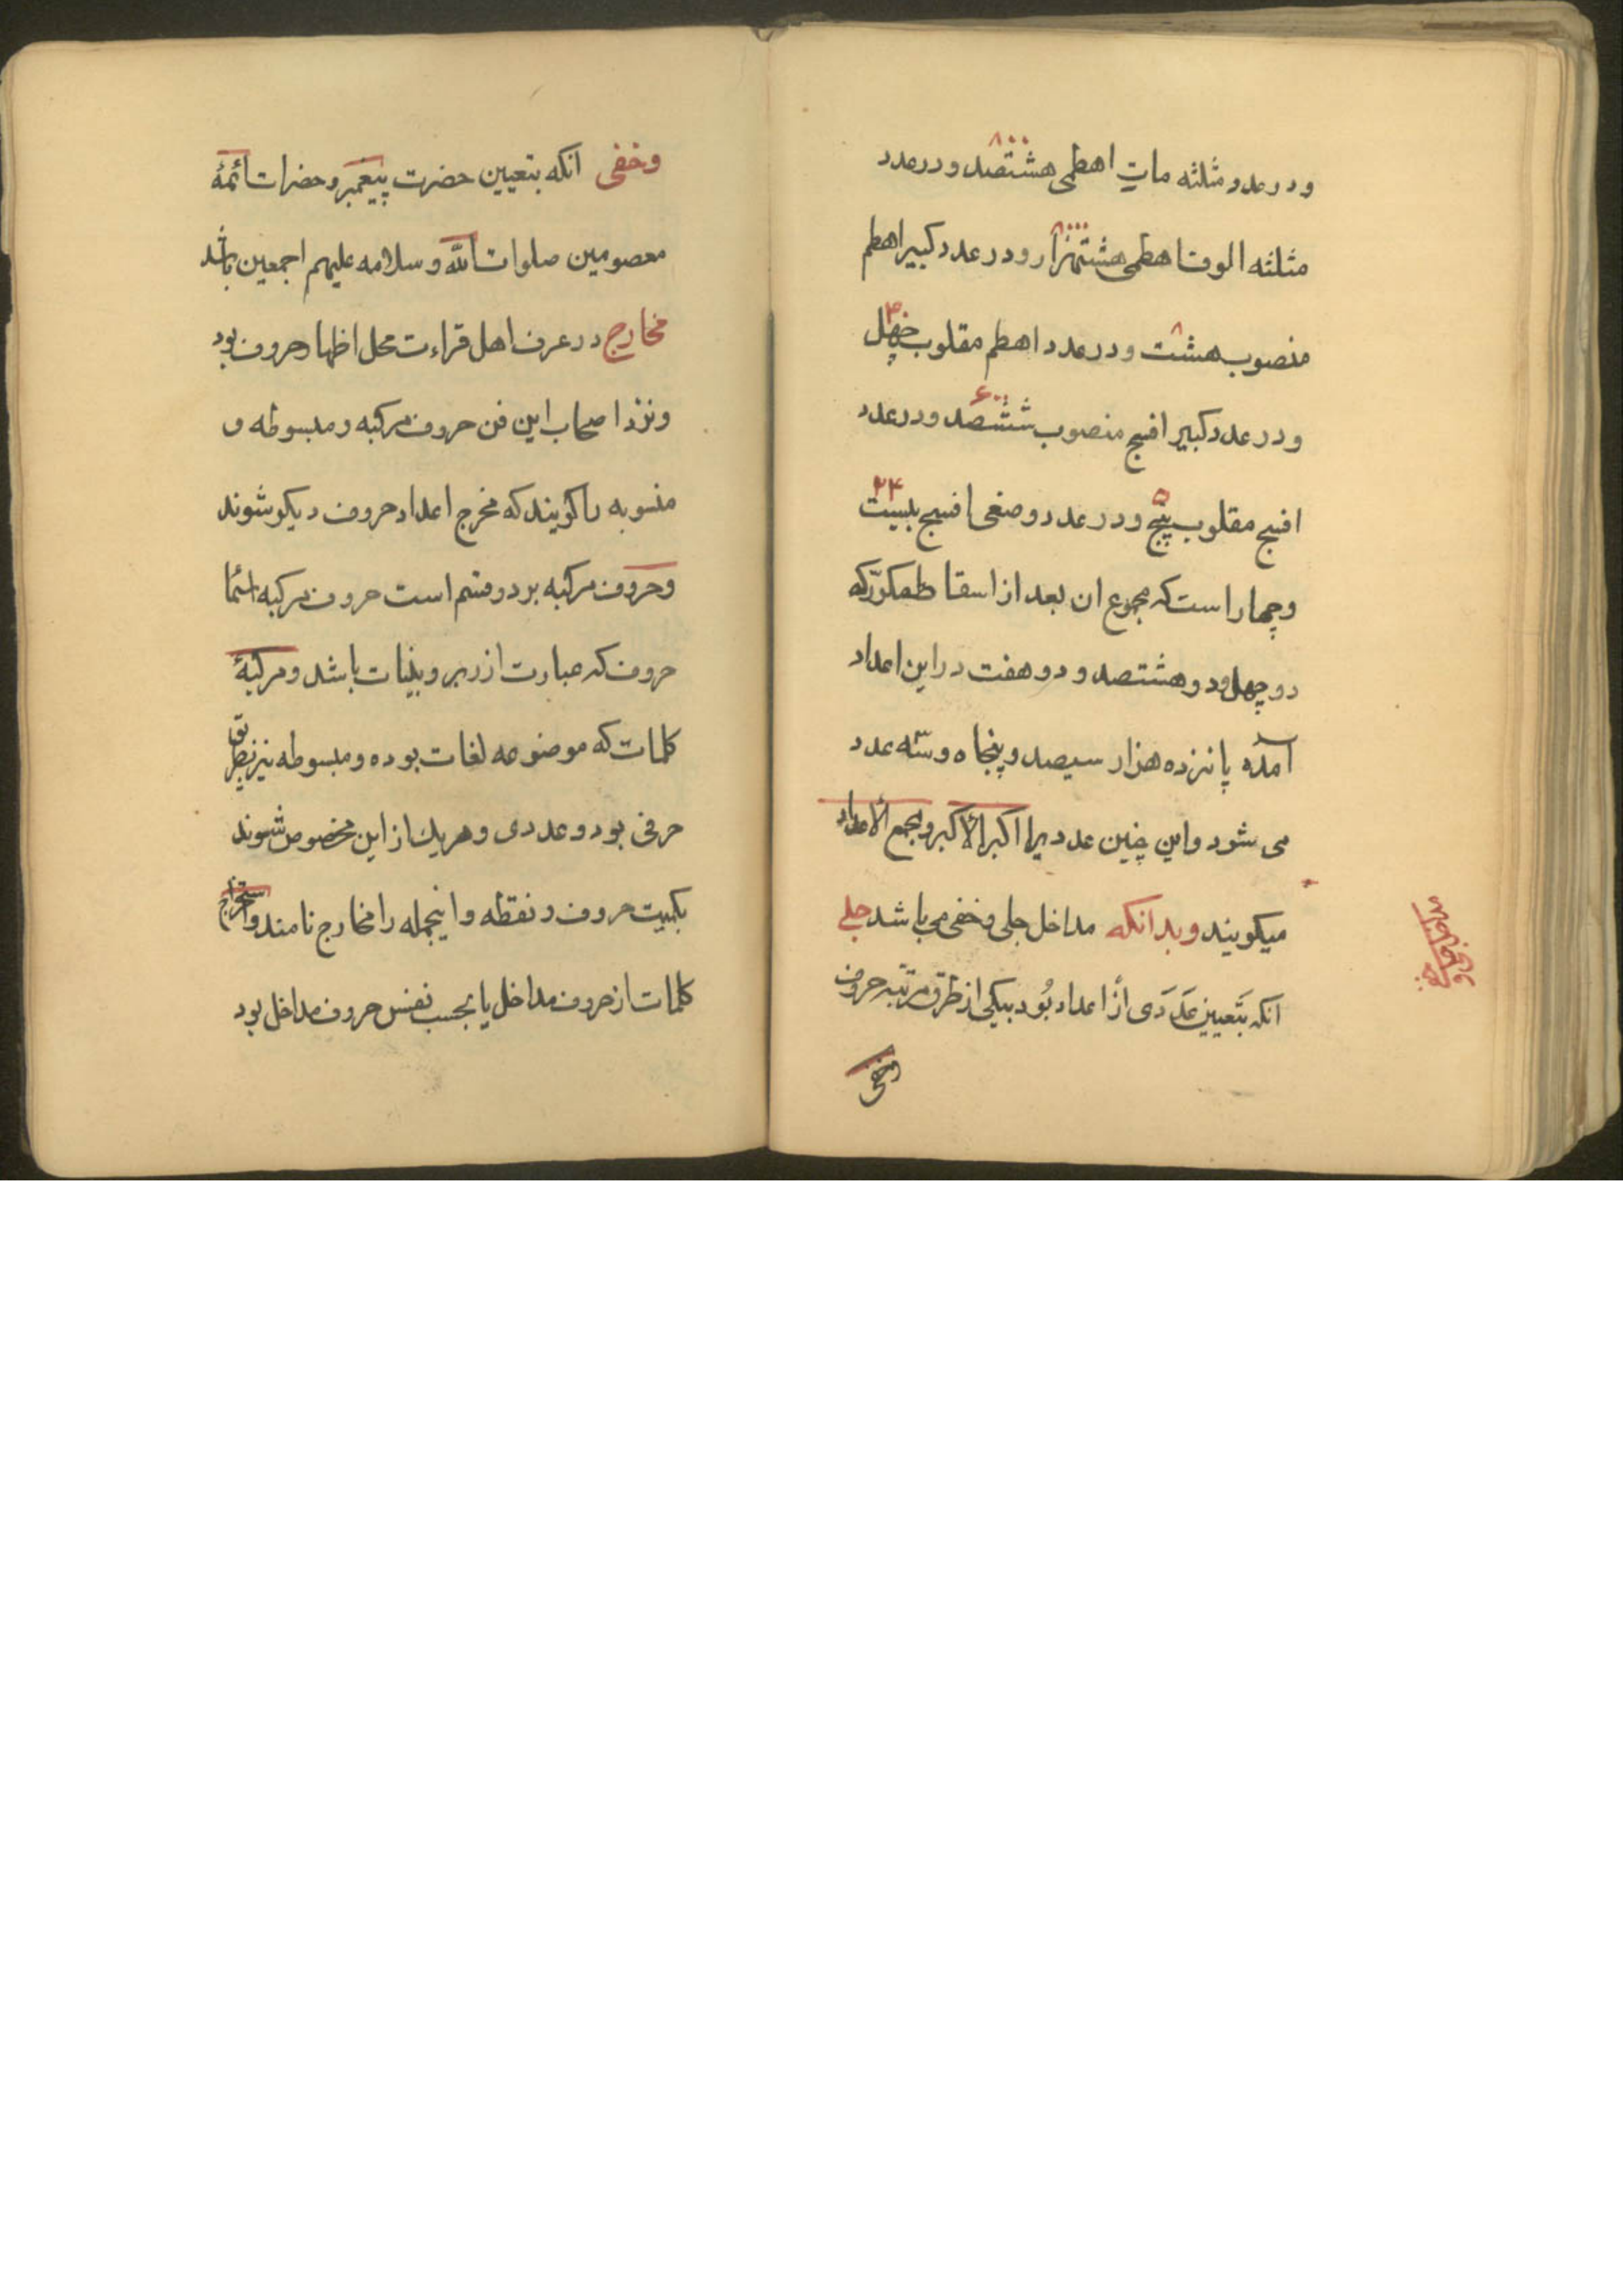 ۸۰۰
و در عدد مثلثه مات اهطمی هشتصد و در عدد
۸۰۰۰
مثلثه الوف اهطمی هشتهزار و در عدد کبیر اهطم
۸ ۴۰
منصوب هشت و در عدد اهطم مقلوب چهل
۶۰۰
و در عدد کبیر افسج منصوب ششصد و در عدد
۵ ۲۴
افسج مقلوب پنج و در عدد وصغی افسج بیست
و چهار است که مجموع ان بعد از اسقاط مکرّر که
دو چهل و دو هشتصد و دو هفت در این اعداد
آمده پانزده هزار سیصد و پنجاه و سه عدد
می شود و این چنین عدد یرا اکبر الاکبر و مجمع الاعداد
میکویند و بدانکه مداخل جلی و خفی می باشد جلی
انکه بتَعیین عَدَدی اَز اعداد بُود بیکی از طرق مرتبه حروف
وخفی
وخفی انکه بتعیین حضرت پیغمبر و حضرات ائمۀ
معصومین صلوات الله و سلامه علیهم اجمعین باشد
مخارج در عرف اهل قراءت محل اظهار حروف بود
و نزد اصحاب این فن حروف مرکبه و مبسوطه و
منسوبه را کویند که مخرج اعداد حروف دیکر شوند
و حروف مرکبه بر دو قسم است حروف مرکبه اسماء
حروف که عبارت از زبر و بینات باشد و مرکبۀ
کلمات که موضوعه لغات بوده و مبسوطه نیز بطریق
حرفی بود و عددی و هر یک از این مخصوص شوند
بکمیت حروف و نقطه و اینجمله را مخارج نامند و استخراج
کلمات از حروف مداخل یا بحسب نفس حروف مداخل بود